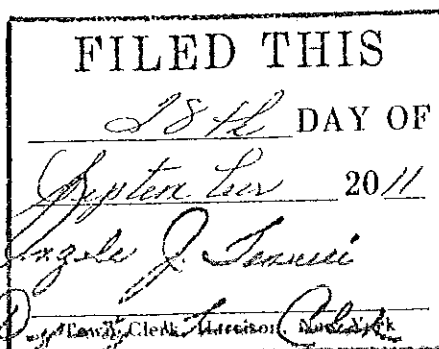 FILED THIS
28th DAY OF
September 2011
Angelo J.
Town Clerk, Harrison, New York